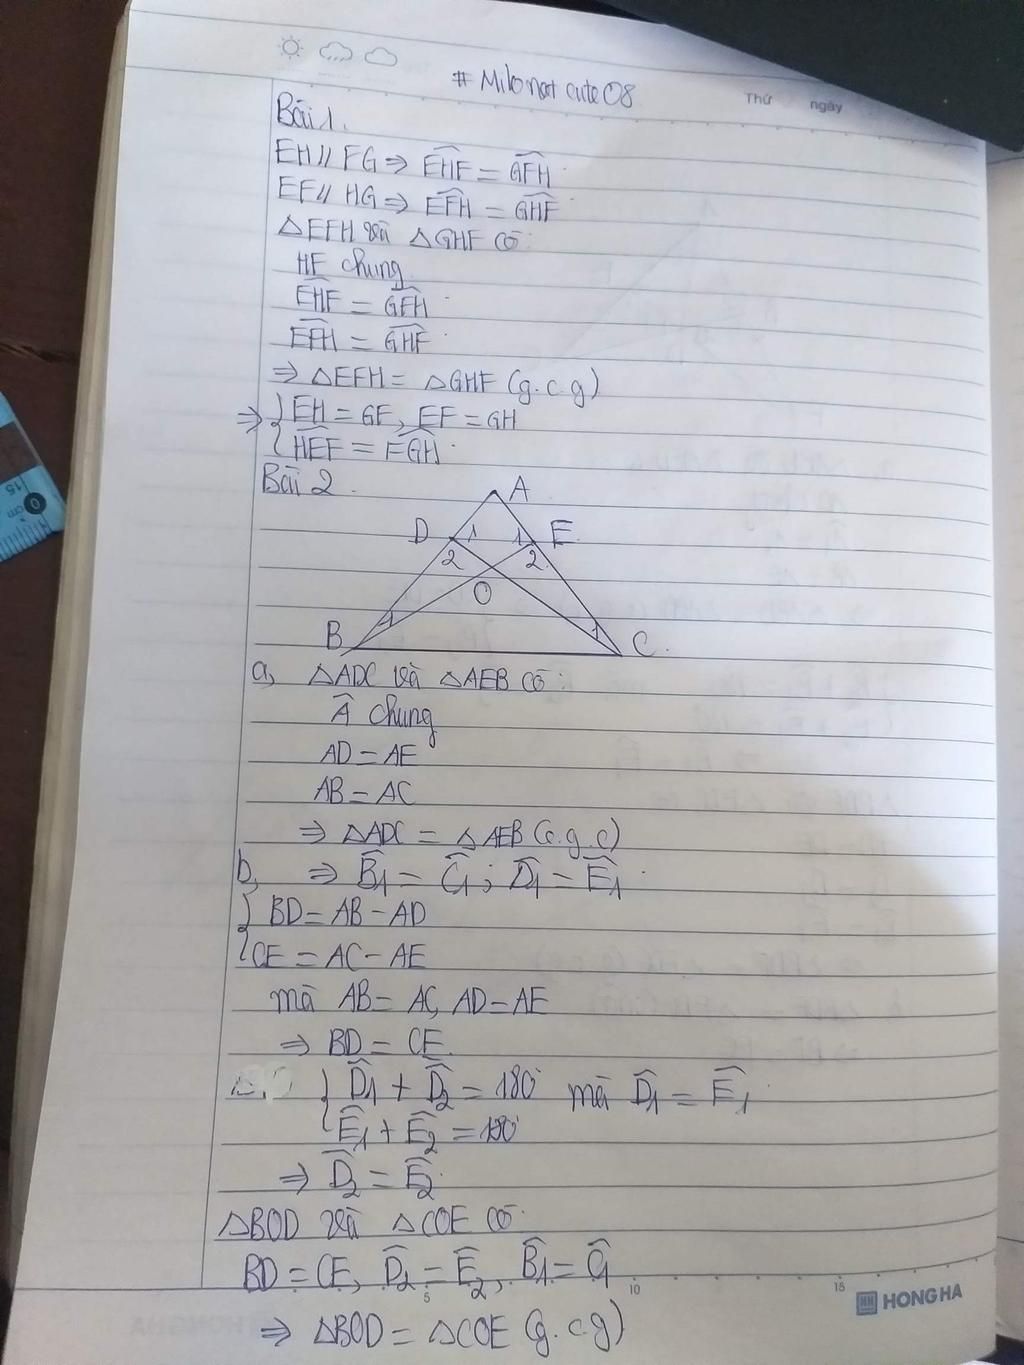 # Milonat cute08
Thứ ngày
Bài 1.
EH // FG ⇒ \widehat{EHF} = \widehat{GFH}
EF // HG ⇒ \widehat{EFH} = \widehat{GHF}
△EFH và △GHF có:
HF chung
\widehat{EHF} = \widehat{GFH}
\widehat{EFH} = \widehat{GHF}
⇒ △EFH = △GHF (g.c.g)
⇒ { EH = GF, EF = GH
{ \widehat{HEF} = \widehat{FGH}
Bài 2.
A
D 1 1 E
2 2
O
1 1
B C
a, △ADC và △AEB có:
\widehat{A} chung
AD = AE
AB = AC
⇒ △ADC = △AEB (c.g.c)
b, ⇒ \widehat{B_1} = \widehat{C_1}; \widehat{D_1} = \widehat{E_1}
{ BD = AB - AD
{ CE = AC - AE
mà AB = AC, AD = AE
⇒ BD = CE
{ \widehat{D_1} + \widehat{D_2} = 180° mà \widehat{D_1} = \widehat{E_1}
{ \widehat{E_1} + \widehat{E_2} = 180°
⇒ \widehat{D_2} = \widehat{E_2}
△BOD và △COE có:
BD = CE, \widehat{D_2} = \widehat{E_2}, \widehat{B_1} = \widehat{C_1}
5 10 15
HONG HA
⇒ △BOD = △COE (g.c.g)
0 cm
15